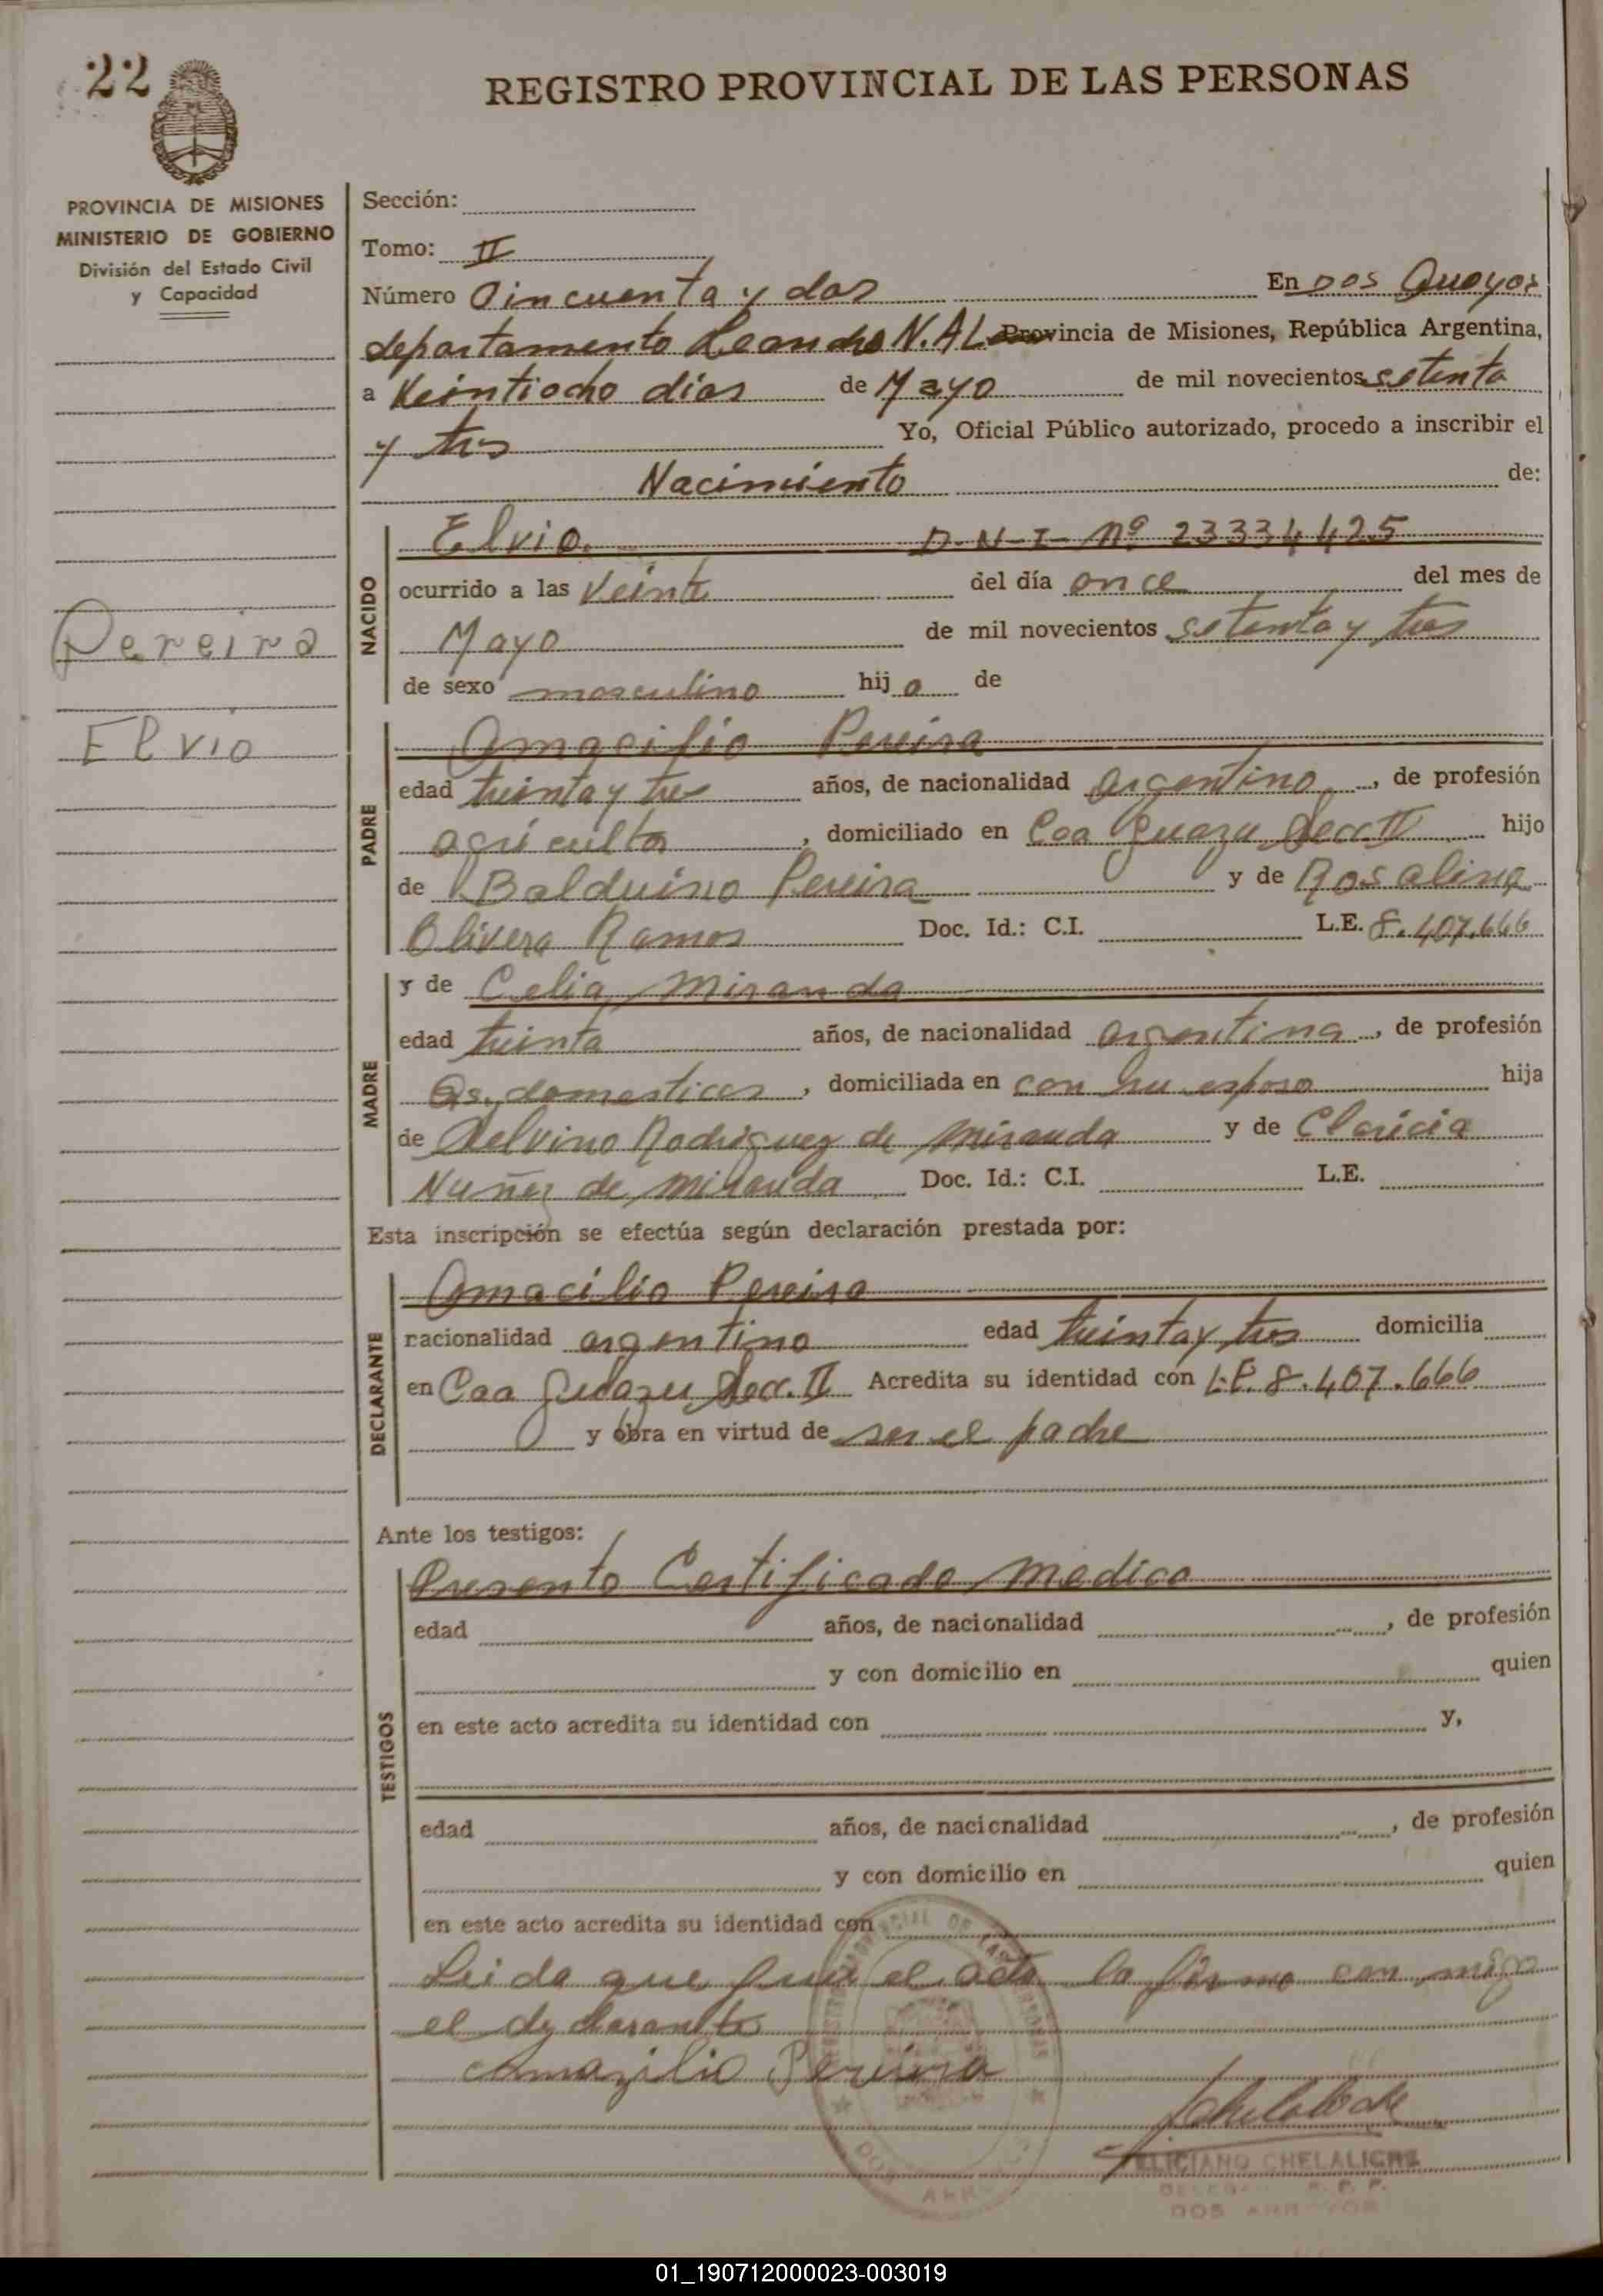 22
REGISTRO PROVINCIAL DE LAS PERSONAS
PROVINCIA DE MISIONES
MINISTERIO DE GOBIERNO
División del Estado Civil
y Capacidad
Pereira
Elvio
Sección:
Tomo: II
Número Cincuenta y dos En Dos Arroyos
departamento Leandro N. AL Provincia de Misiones, República Argentina,
a Veintiocho días de Mayo de mil novecientos setenta
y tres Yo, Oficial Público autorizado, procedo a inscribir el
Nacimiento de:
NACIDO
Elvio. D-N-I- Nº 23334425
ocurrido a las Veinte del día once del mes de
Mayo de mil novecientos setenta y tres
de sexo masculino hijo de
PADRE
Amacilio Pereira
edad treinta y tres años, de nacionalidad argentino, de profesión
agricultor, domiciliado en Caa Guazu Secc II hijo
de Balduino Pereira y de Rosalina
Olivera Ramos Doc. Id.: C.I. L.E. 8.407.666
MADRE
y de Celia Miranda
edad treinta años, de nacionalidad argentina, de profesión
Qs. domesticos, domiciliada en con su esposo hija
de Delvino Rodriguez de Miranda y de Claricia
Nuñez de Miranda Doc. Id.: C.I. L.E.
Esta inscripción se efectúa según declaración prestada por:
DECLARANTE
Amacilio Pereira
nacionalidad argentino edad treinta y tres domicilia
en Caa Guazu Secc. II Acredita su identidad con L.E. 8.407.666
y obra en virtud de ser el padre
Ante los testigos:
TESTIGOS
Presento Certificado Medico
edad años, de nacionalidad , de profesión
y con domicilio en quien
en este acto acredita su identidad con y,
edad años, de nacionalidad , de profesión
y con domicilio en quien
en este acto acredita su identidad con
Leida que fue el acta la firma con migo
el declarante
Amazilio Pereira
FELICIANO CHELALICHE
DOS ARROYOS
01_190712000023-003019